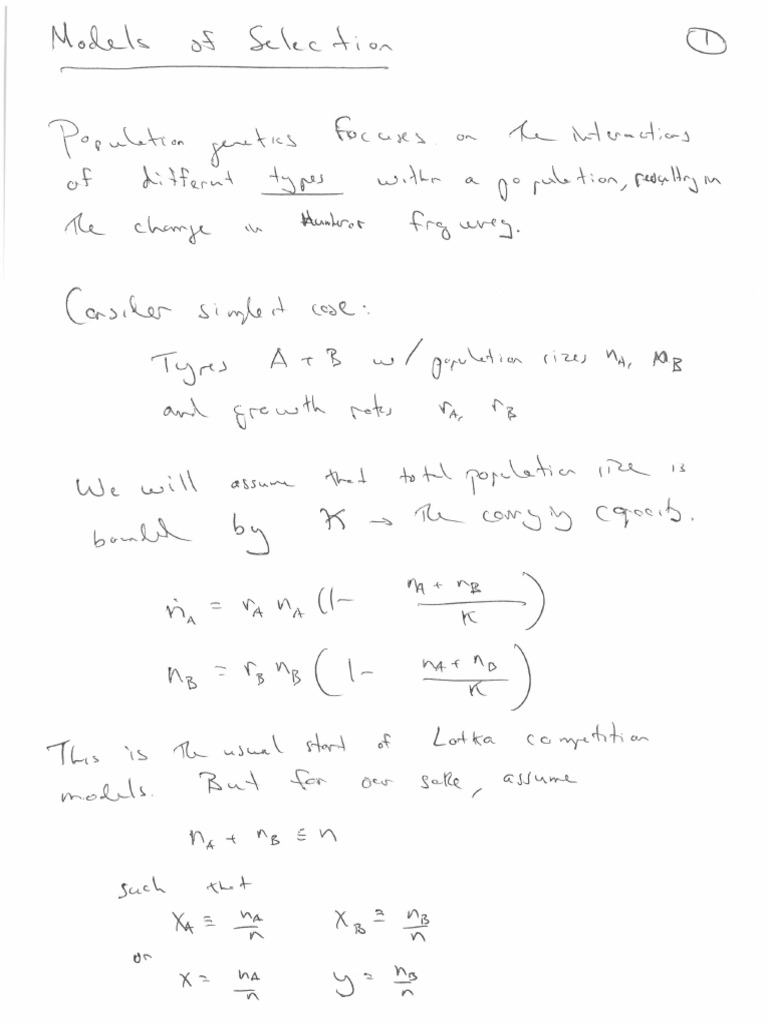 Models of Selection
1
Population genetics focuses on the interactions
of different types within a population, resulting in
the change in frequency.
Consider simplest case:
Types A + B w/ population sizes n_A, n_B
and growth rates r_A, r_B
We will assume that total population size is
bounded by K → the carrying capacity.
ṅ_A = r_A n_A (1 - (n_A + n_B)/K)
n_B = r_B n_B (1 - (n_A + n_B)/K)
This is the usual start of Lotka competition
models. But for our sake, assume
n_A + n_B ≡ n
such that
x_A ≡ n_A/n x_B ≡ n_B/n
or
x = n_A/n y = n_B/n